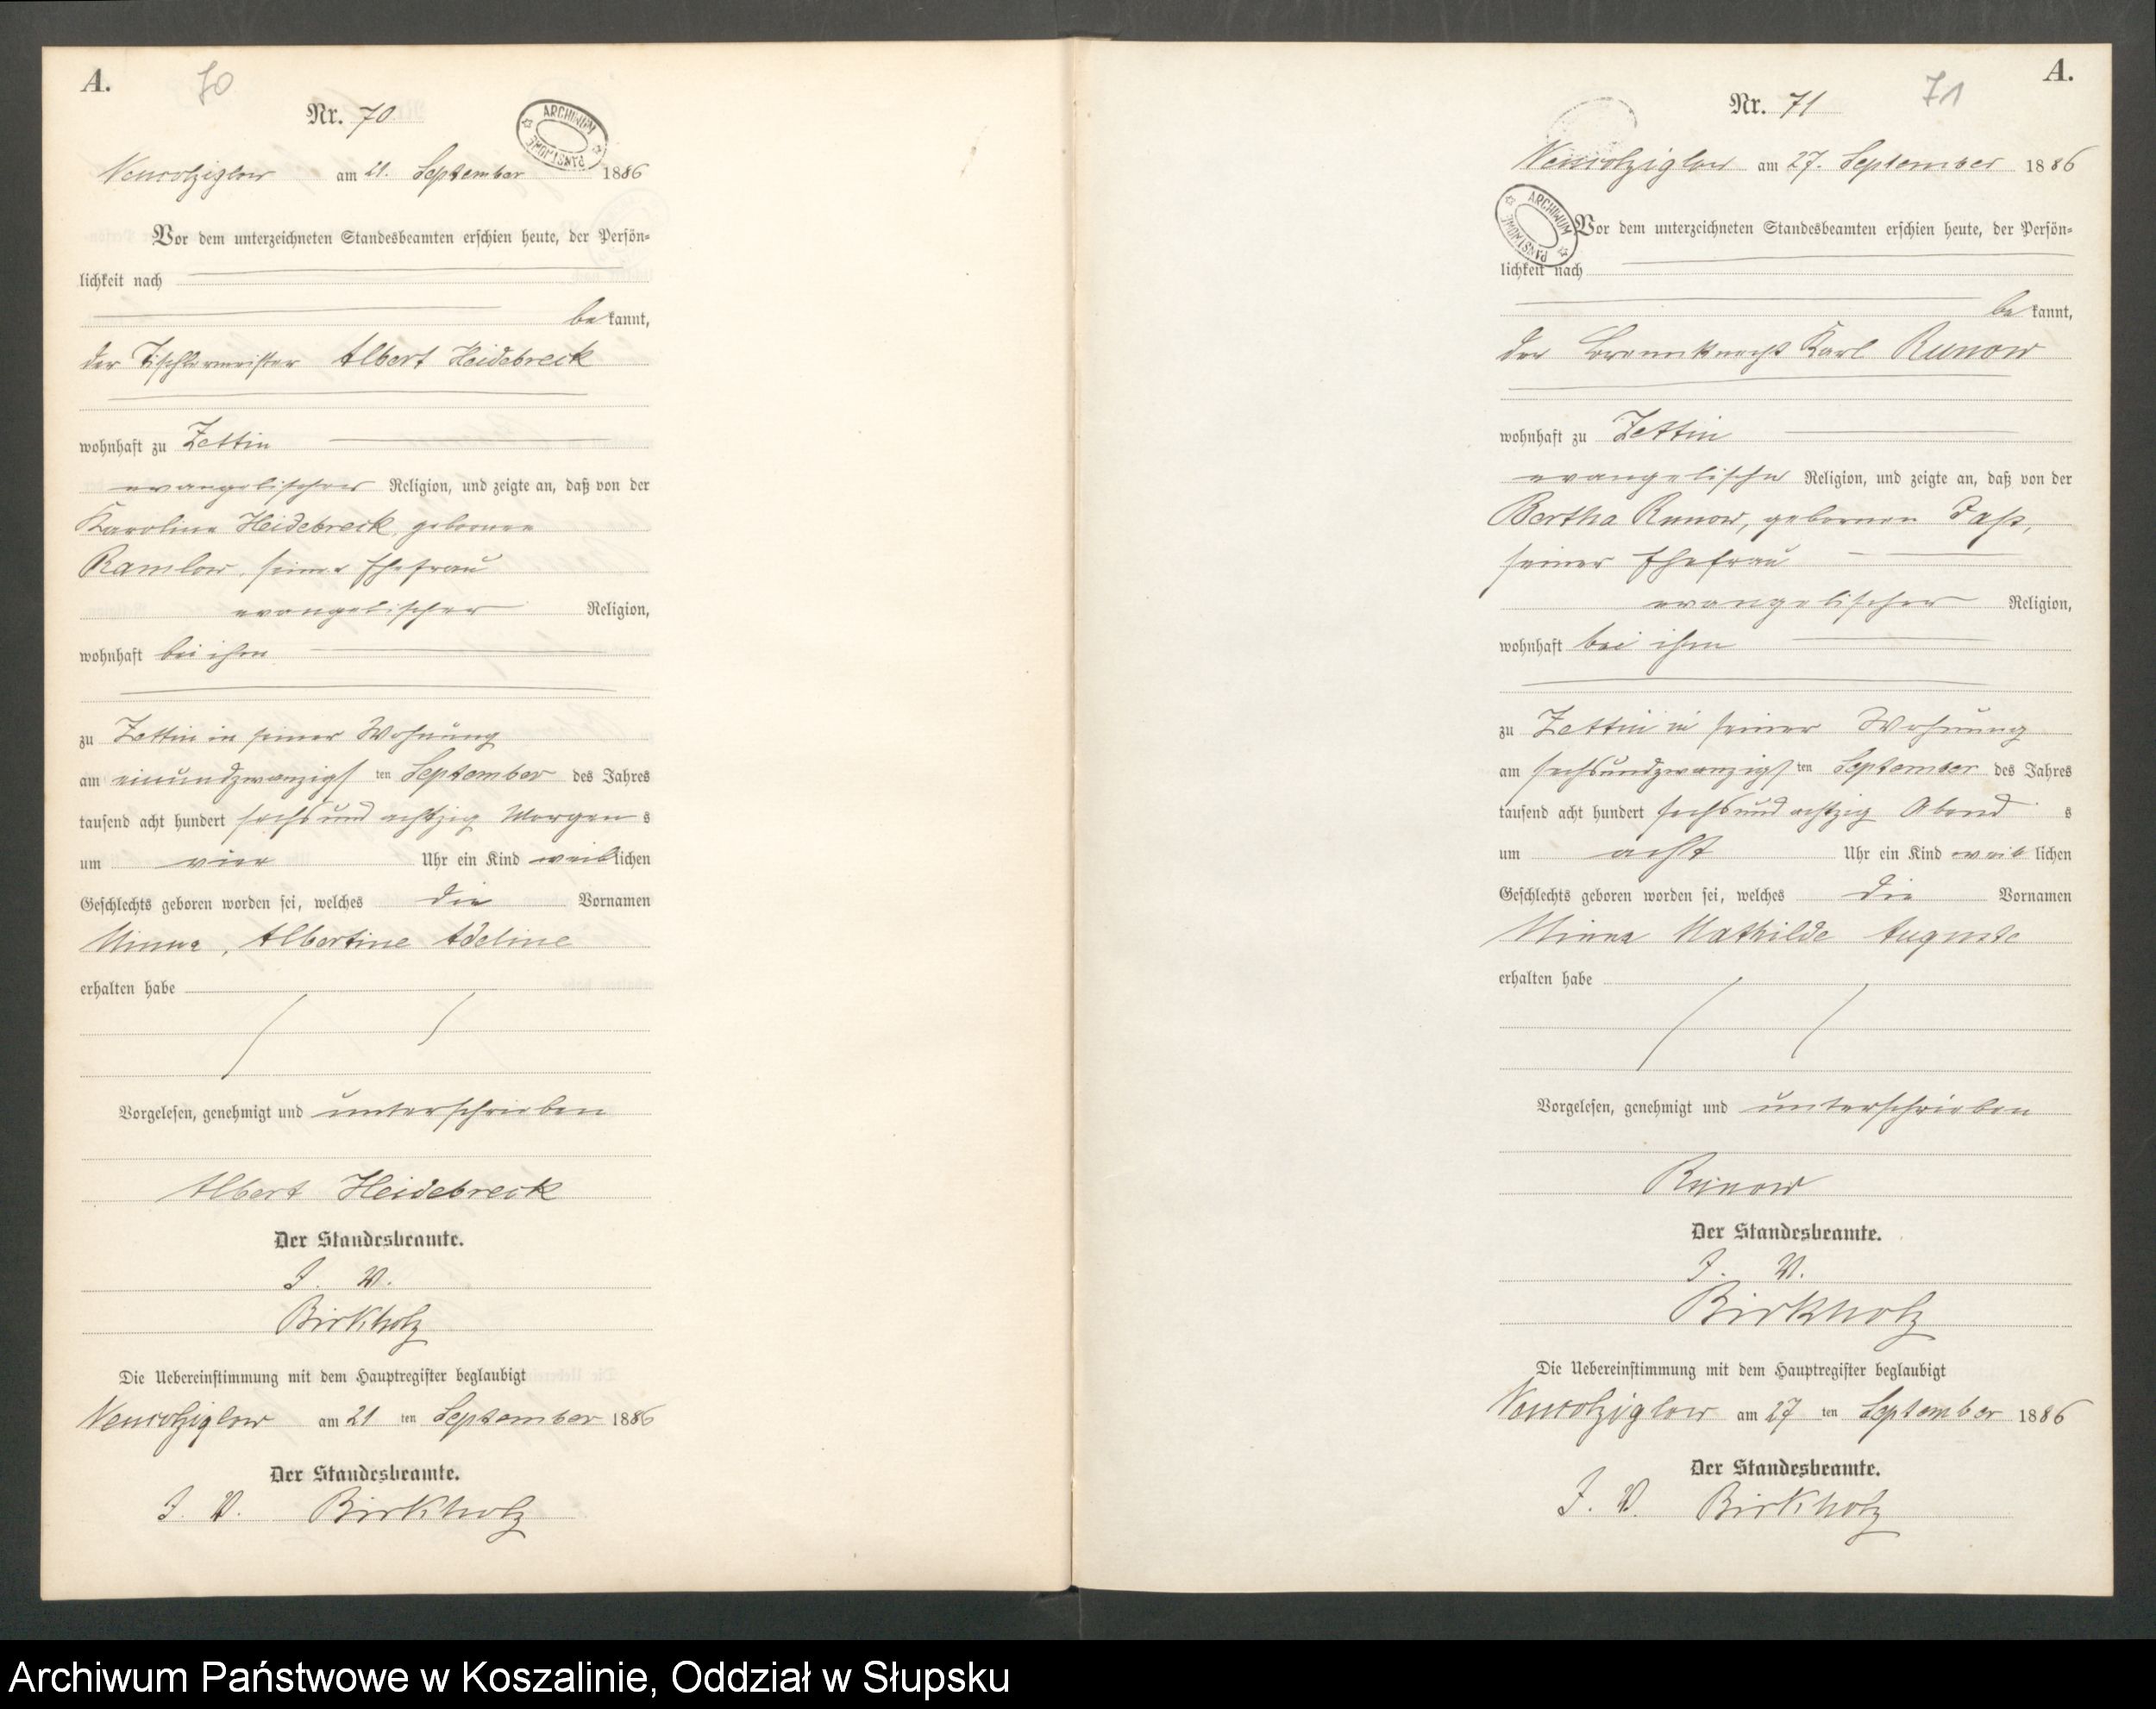 A.
70
Nr. 70
ARCHIWUM PAŃSTWOWE
am 21. September 1886
Vor dem unterzeichneten Standesbeamten erschien heute, der Persön=
lichkeit nach
bekannt,
der Tischlermeister Albert Heidebreck
wohnhaft zu Zettin
evangelischer Religion, und zeigte an, daß von der
Karoline Heidebreck, geborenen
Ramlow, seiner Ehefrau
evangelischer Religion,
wohnhaft bei ihm
zu Zettin in seiner Wohnung
am einundzwanzigsten September des Jahres
tausend acht hundert sechsundachtzig Morgens
um vier Uhr ein Kind weiblichen
Geschlechts geboren worden sei, welches die Vornamen
Minna, Albertine Adeline
erhalten habe
Vorgelesen, genehmigt und unterschrieben
Albert Heidebreck
Der Standesbeamte.
J. V.
Birkholz
Die Uebereinstimmung mit dem Hauptregister beglaubigt
am 21 ten September 1886
Der Standesbeamte.
J. V. Birkholz
A.
71
Nr. 71
am 27. September 1886
ARCHIWUM PAŃSTWOWE
Vor dem unterzeichneten Standesbeamten erschien heute, der Persön=
lichkeit nach
bekannt,
der Karl Runow
wohnhaft zu Zettin
evangelischer Religion, und zeigte an, daß von der
Bertha Runow, gebornen
seiner Ehefrau
evangelischer Religion,
wohnhaft bei ihm
zu Zettin in seiner Wohnung
am sechsundzwanzigsten September des Jahres
tausend acht hundert sechsundachtzig Abends
um acht Uhr ein Kind weiblichen
Geschlechts geboren worden sei, welches die Vornamen
Minna Mathilde Auguste
erhalten habe
Vorgelesen, genehmigt und unterschrieben
Runow
Der Standesbeamte.
J. V.
Birkholz
Die Uebereinstimmung mit dem Hauptregister beglaubigt
am 27 ten September 1886
Der Standesbeamte.
J. V. Birkholz
Archiwum Państwowe w Koszalinie, Oddział w Słupsku